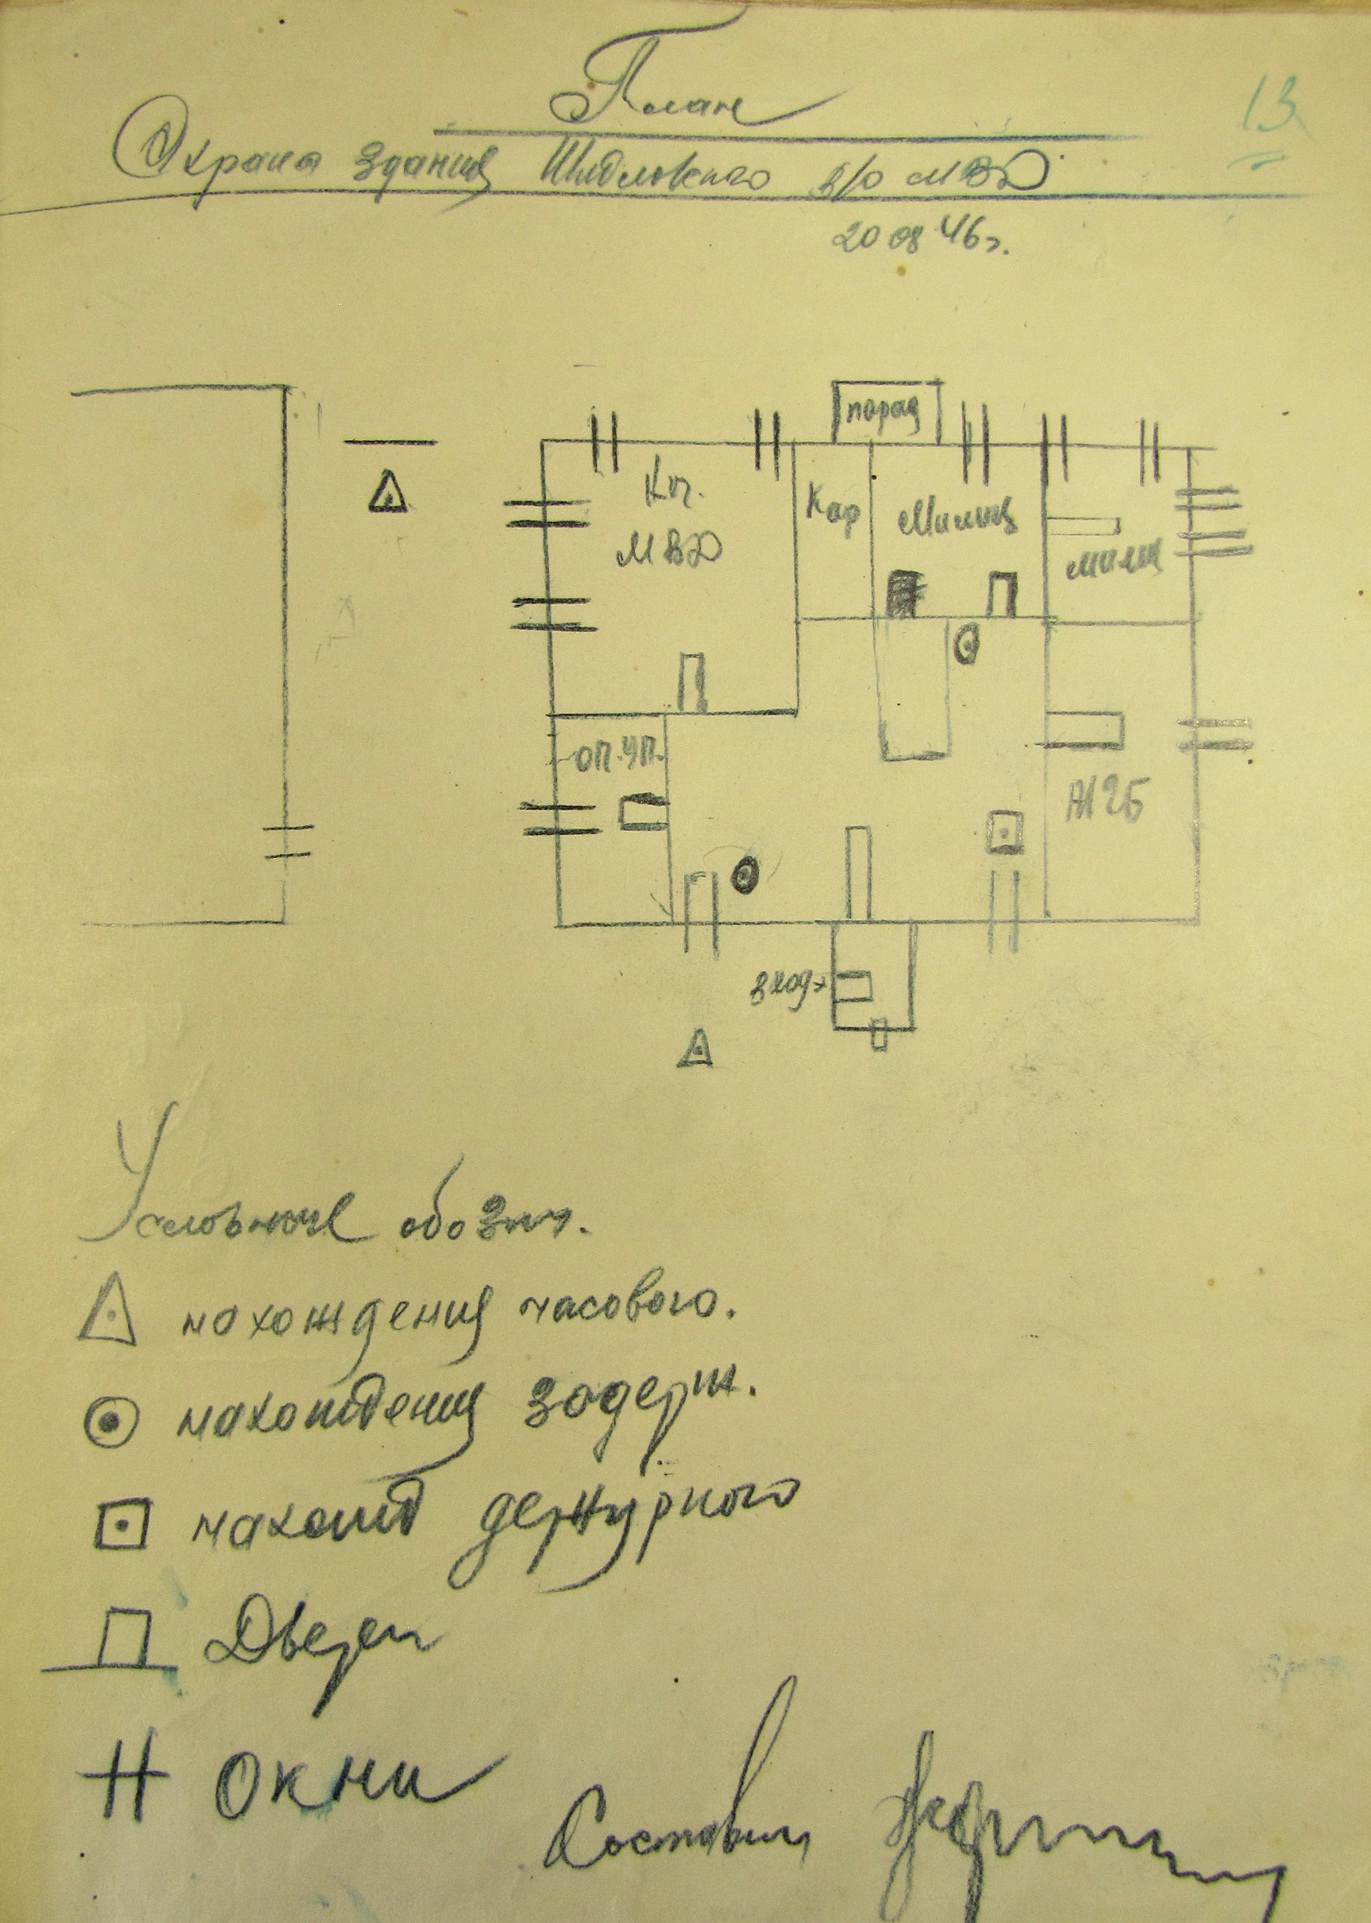 План
13
Охрана здания Шидловского р/о МВД
20 08 46 г.
парад
Кп.
МВД
Кар
Милиц
милиц
оп. уп.
МГБ
вход
Условные обозн.
нахождения часового.
нахождения задерж.
нахожд дежурного
Двери
Окни
Составил